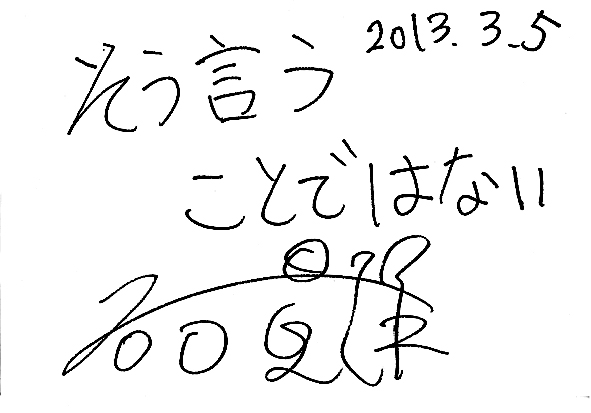 2013.3.5
そう言う
ことではない